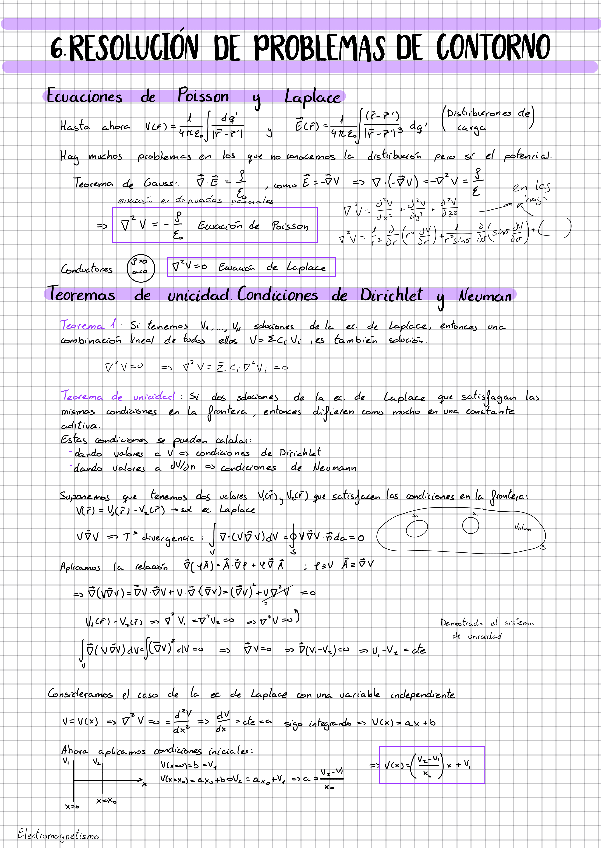 6. RESOLUCIÓN DE PROBLEMAS DE CONTORNO
Ecuaciones de Poisson y Laplace
Hasta ahora V(r̄) = 1/4πε₀ ∫ dq'/|r̄-r̄'| y E⃗(r̄) = 1/4πε₀ ∫ (r̄-r̄')/|r̄-r̄'|³ dq' (Distribuciones de carga)
Hay muchos problemas en los que no conocemos la distribución pero sí el potencial.
Teorema de Gauss: ∇⃗ E⃗ = ρ/ε₀, como E⃗ = -∇⃗V => ∇·(-∇⃗V) = -∇²V = ρ/ε en las
ecuación en derivadas parciales
∇²V = ∂²V/∂x² + ∂²V/∂y² + ∂²V/∂z²
=> ∇²V = -ρ/ε₀ Ecuación de Poisson
∇²V = 1/r² ∂/∂r (r² ∂V/∂r) + 1/r²senθ ∂/∂θ (senθ ∂V/∂θ) + ( )
Conductores ρ=0 ∇²V=0 Ecuación de Laplace
Teoremas de unicidad. Condiciones de Dirichlet y Neuman
Teorema 1: Si tenemos V₁,..., Vₙ soluciones de la ec. de Laplace, entonces una
combinación lineal de todas ellas V = Σ Cᵢ Vᵢ, es también solución.
∇²V=0 => ∇²V = Σ Cᵢ ∇²Vᵢ = 0
Teorema de unicidad: Si dos soluciones de la ec. de Laplace que satisfagan las
mismas condiciones en la frontera, entonces difieren como mucho en una constante
aditiva.
Estas condiciones se pueden calcular:
-dando valores a V => condiciones de Dirichlet
-dando valores a dV/dn => condiciones de Neumann
Suponemos que tenemos dos valores V₁(r̄), V₂(r̄) que satisfacen las condiciones en la frontera:
V(r̄) = V₁(r̄) - V₂(r̄) → sol ec Laplace
V∇⃗V => Tª divergencia: ∫ᵥ ∇·(V∇⃗V)dV = ∮ₛ V∇⃗V·n̄ da = 0
Aplicamos la relación ∇⃗(φA⃗) = A⃗·∇⃗φ + φ∇⃗A⃗ ; φ=V A⃗=∇⃗V
=> ∇⃗(V∇⃗V) = ∇⃗V·∇⃗V + V·∇⃗(∇⃗V) = (∇⃗V)² + V∇²V = 0
V₁(r̄) - V₂(r̄) => ∇²V₁ = ∇²V₂ = 0 => ∇²V = 0
Demostrado el teorema
de unicidad
∫ᵥ ∇⃗(V∇⃗V)dV = ∫(∇⃗V)² dV = 0 => ∇⃗V = 0 => ∇⃗(V₁-V₂) = 0 => V₁-V₂ = cte
Consideramos el caso de la ec de Laplace con una variable independiente
V = V(x) => ∇²V = 0 = d²V/dx² => dV/dx = cte = a sigo integrando => V(x) = ax + b
Ahora aplicamos condiciones iniciales:
V₁ V₂ V(x=0) = b = V₁
V(x=x₀) = ax₀ + b = V₂ = ax₀ + V₁ => a = V₂-V₁/x₀
=> V(x) = (V₂-V₁/x₀) x + V₁
x
x=0 x=x₀
Electromagnetismo